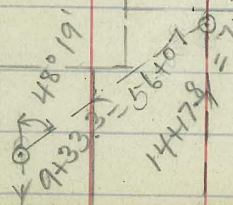 48° 19'
9+33.3 = 56+07
14+17.8 =